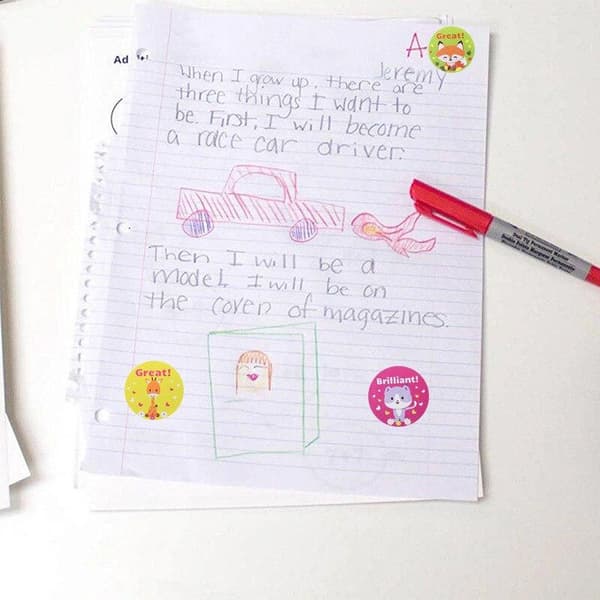 A
Great!
Jeremy
Ad
When I grow up, there are
three things I want to
be. First, I will become
a race car driver.
Then I will be a
model. I will be on
the cover of magazines.
Great!
Brilliant!